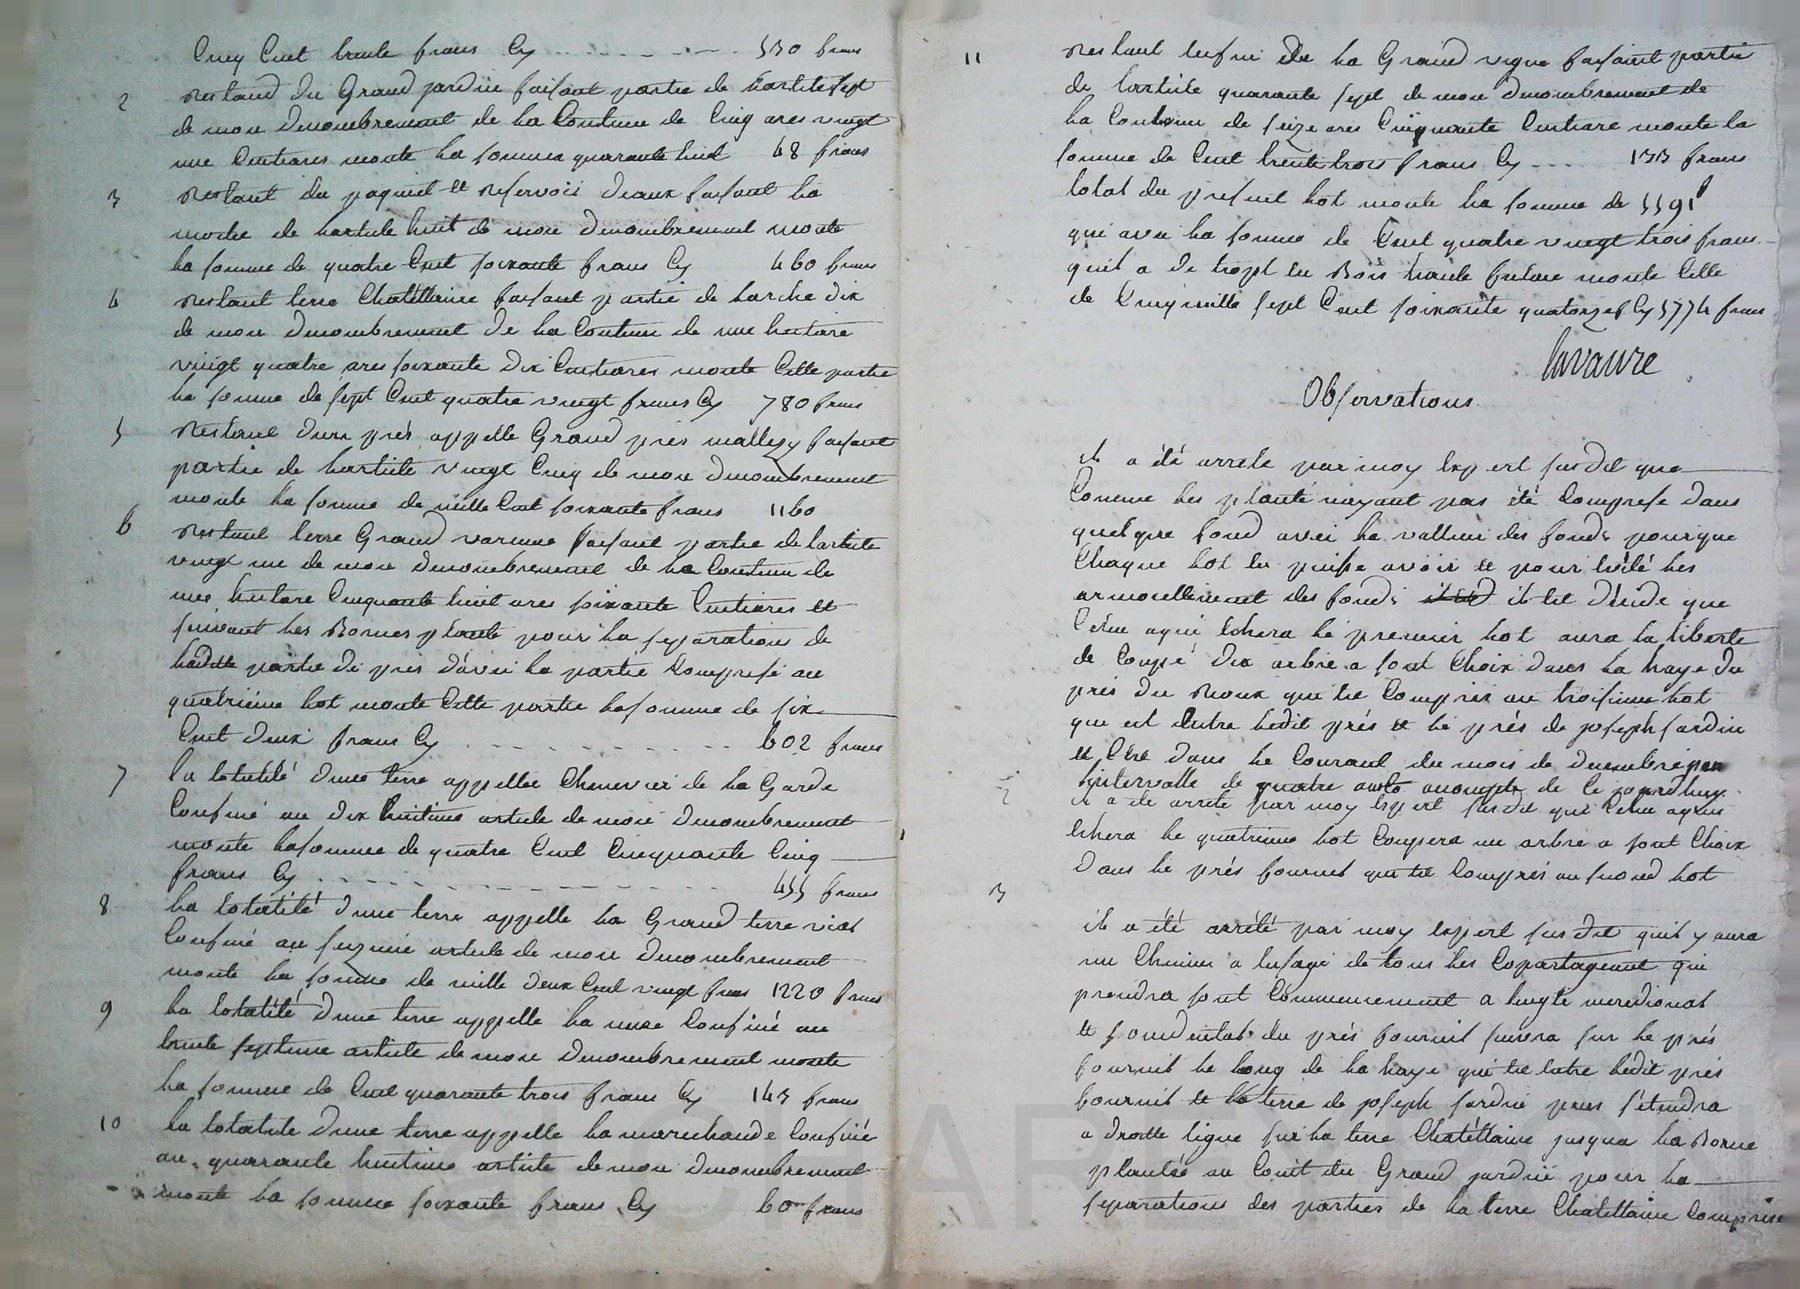 Cinq Cent trente frans Cy 530 frans
2 restand du Grand jardin faisant partie de lartile sept
de mon denombrement de la Contenue de Cinq ares vingt
une Centiares monte la somme quarante huit 48 frans
3 restant du paquiet et reservois deaux faisant la
moitie de lartile huit de mon denombrement monte
la somme de quatre Cent soixante frans Cy 460 frans
4 restant terre Chatellaine faisant partie de larticle dix
de mon denombrement de la Contenue de une hectare
vingt quatre ares soixante dix Centiares monte Cette partie
la somme de sept Cent quatre vingt frans Cy 780 frans
5 restant dun prés appelle Grand prés faisant
partie de lartile vingt Cinq de mon denombrement
monte la somme de mille Cent soixante frans 1160
6 restant terre Grand varenne faisant partie de lartile
vingt une de mon denombrement de la Contenue de
une hectare Cinquante huit ares soixante Centiares et
suivant les Bornes plante pour la separation de
ladite partie de prés davec la partie Comprise au
quatrieme lot monte Cette partie la somme de six
Cent deux frans Cy 602 frans
7 la totalité dune terre appellée Chenevier de la Garde
Confiné au dix huitime article de mon denombrement
monte la somme de quatre Cent Cinquante Cinq
frans Cy 455 frans
8 la totalité dune terre appelle la Grand terre
Confiné au article de mon denombrement
monte la somme de mille deux Cent vingt frans 1220 frans
9 la totalité dune terre appelle la Confiné au
trente septieme article de mon denombrement monte
la somme de Cent quarante trois frans Cy 143 frans
10 la totalité dune terre appelle la marechaude Confiné
au quarante huitime article de mon denombrement
monte la somme soixante frans Cy 60 frans
11 restant enfin de la Grand vigne faisant partie
de lartile quarante sept de mon denombrement de
la Contenue de seize ares Cinquante Centiare monte la
somme de Cent trente trois frans Cy 133 frans
total du present lot monte la somme de 5591 f
qui avec la somme de Cent quatre vingt trois frans
quil a de tropt en Bois haute futaie monte Celle
de Cinq mille sept Cent soixante quatorze f Cy 5774 frans
lavaure
Observations
il a été arrete par moy Expert susdit que
Comme les planté nayant pas été Comprise dans
quelque fond avec la valleur des fonds pourque
Chaque lot en puisse avoir et pour les
des fonds il est décidé que
Celui aqui Echera le premier lot aura la liberte
de Coupé dix arbre a sont Choix dans la haye du
prés du qui est Compris au troisieme lot
qui est Entre ledit prés et le prés de joseph Sardin
et Ce dans le Courant du mois de decembre pen
lintervalle de quatre de Ce jourdhuy
2 il a été arrete par moy Expert susdit que Celui aqui
Echera le quatrieme lot Coupera un arbre a sont Choix
dans le prés fournit qui est Compris au second lot
3
il a été arrété par moy Expert susdit quil y aura
un Chemin a lusage de tous les Copartageant qui
prendra sont Commencement a meridional
et du prés fournit suivra sur le prés
fournit le long de la haye qui est Entre ledit prés
fournit et la terre de joseph Sardin puis sétendra
a droitte ligne sur la terre Chatéllaine jusqua la Borne
plantée au du Grand jardin pour la
separations des parties de la terre Chatellaine Comprise